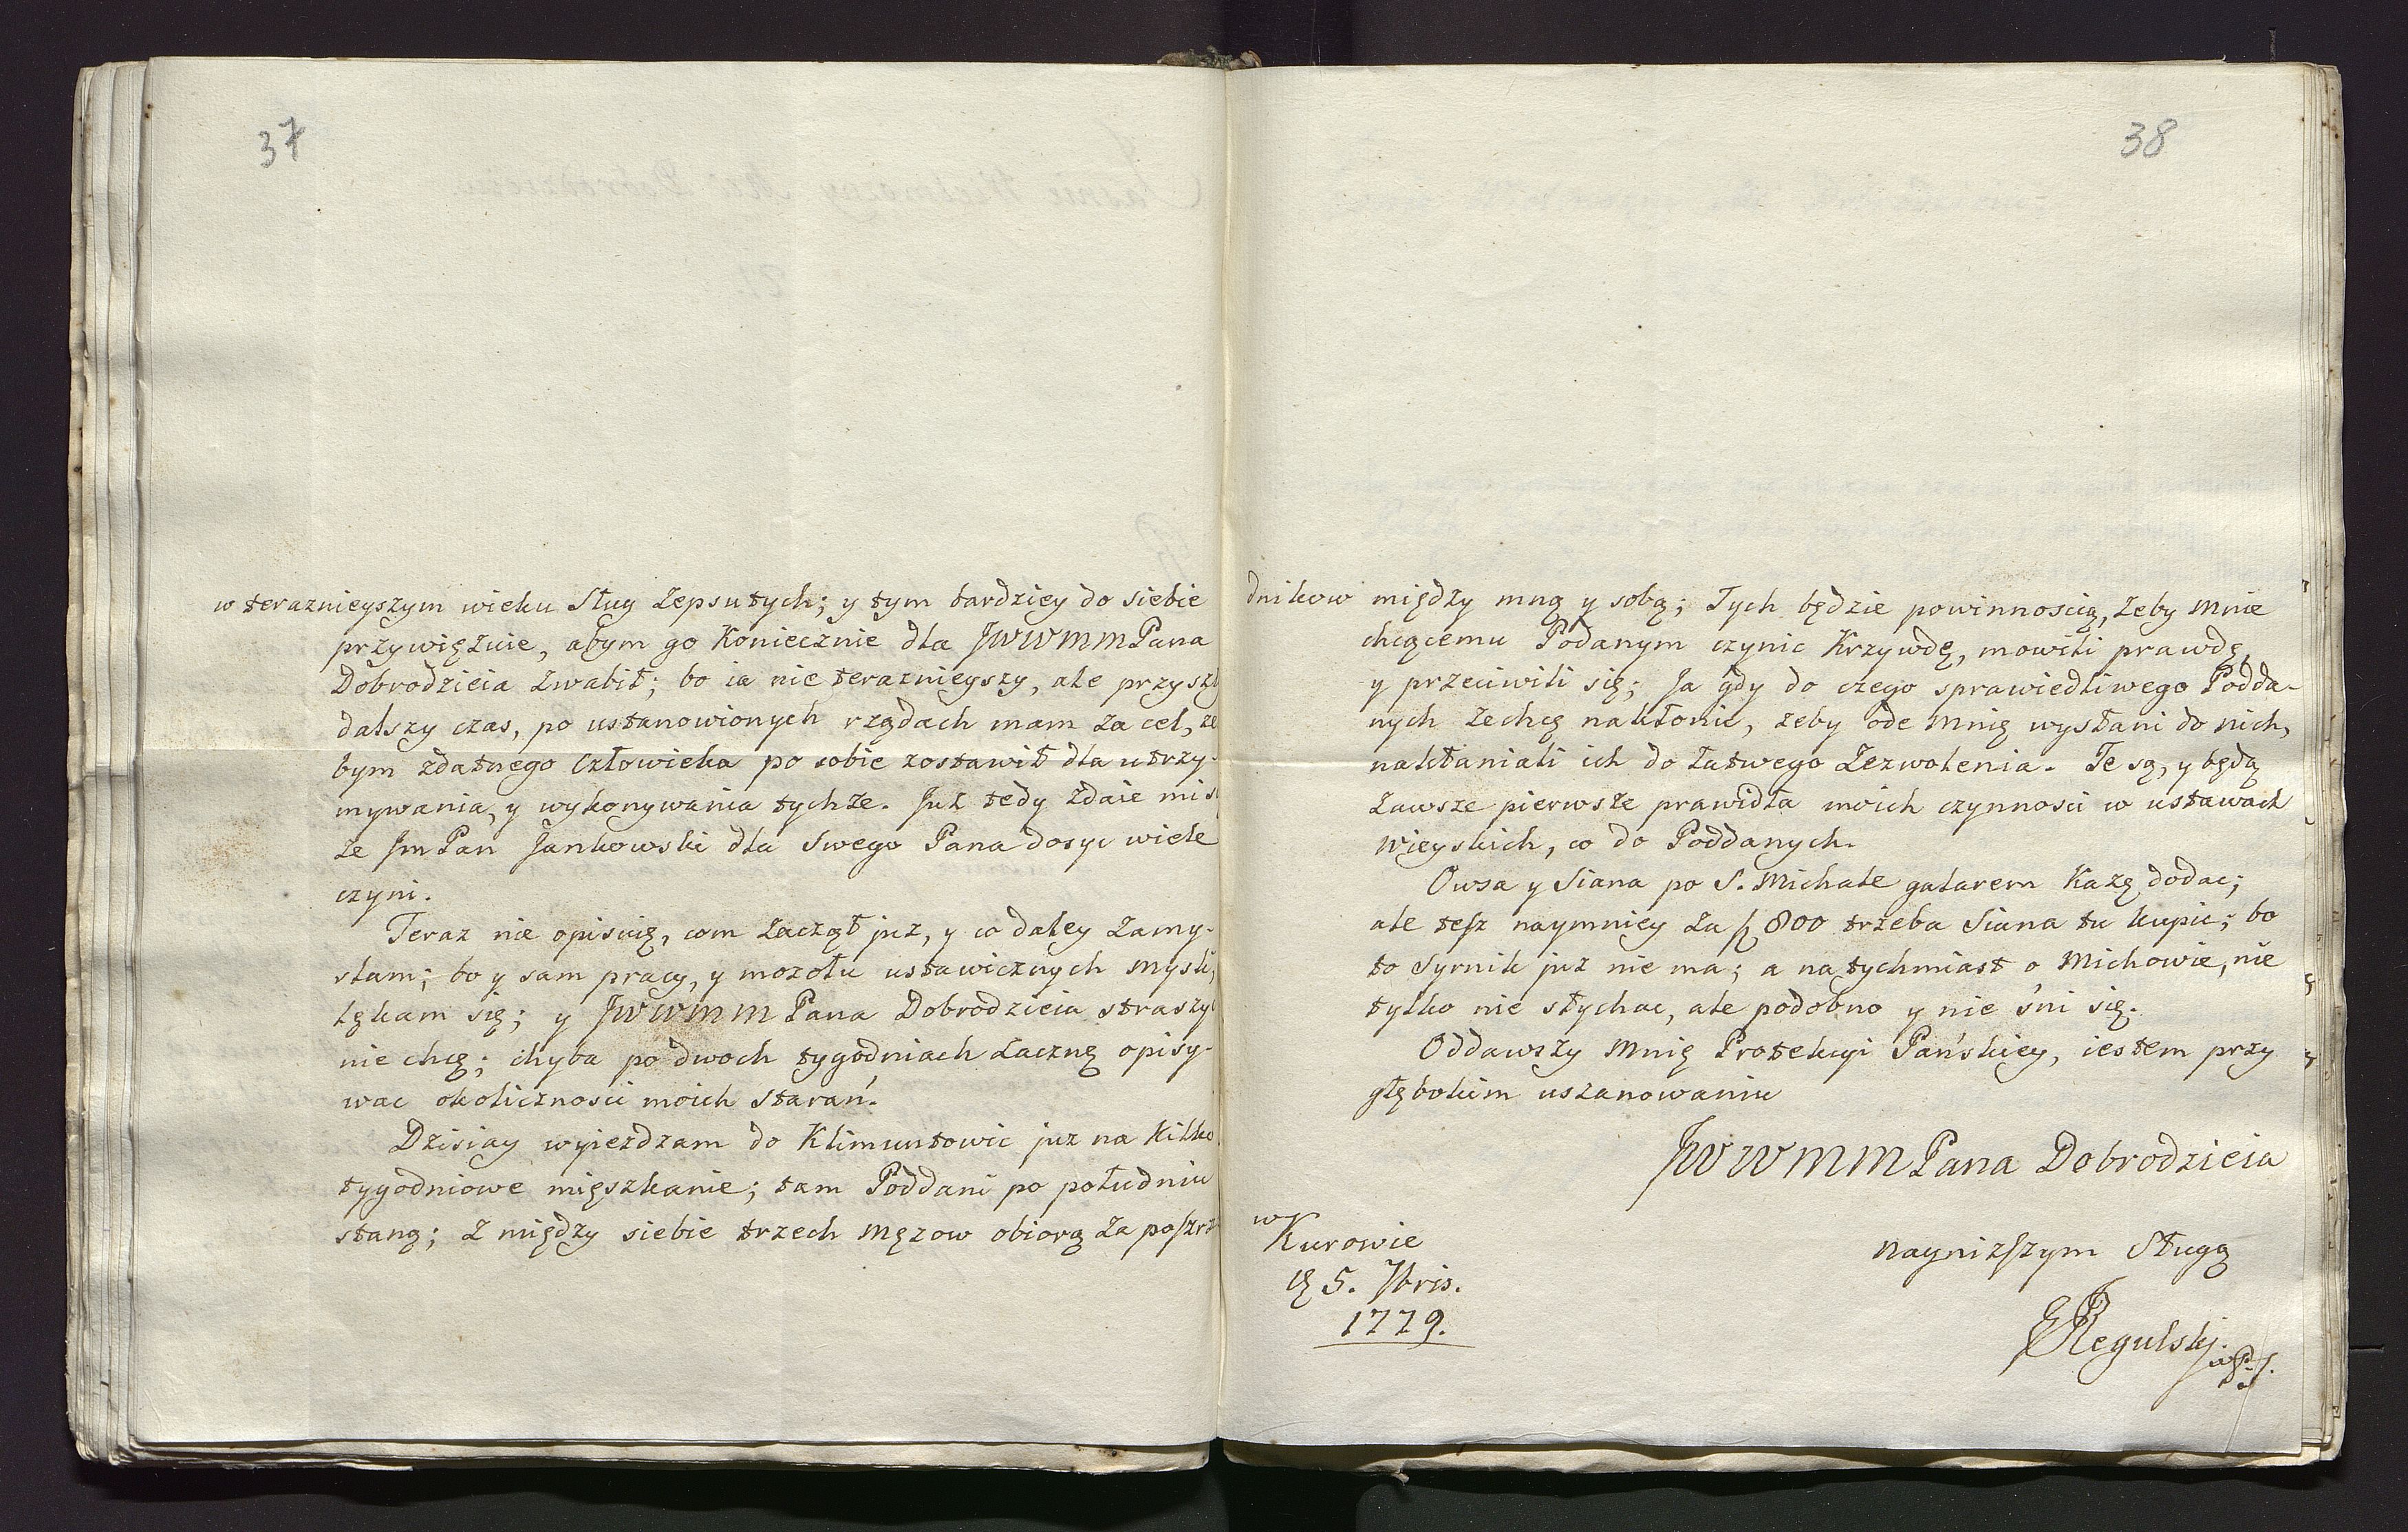 37
w teraznieyszym wieku Sług zepsutych; y tym bardziey do siebie
przywięzuie, abym go koniecznie dla JWWMMPana
Dobrodzieia zwabił; bo ia nie teraznieyszy, ale przysz
dalszy czas, po ustanowionych rządach mam za cel, ze
bym zdatnego człowieka po sobie zostawił dla utrzy-
mywania, y wykonywania tychze. Juz tedy zdaie mi s
ze JmPan Jankowski dla Swego Pana dosyc wiele
czyni.
Teraz nie opisuię, com zaczął juz, y co daley zamy-
slam; bo y sam pracy, y mozołu ustawicznych mysli,
lękam się; y JWWMMPana Dobrodzieia straszyc
nie chcę; chyba po dwoch tygodniach zacznę opisy-
wac okolicznosci moich starań.
Dzisiay wyiezdzam do Klimuntowic juz na kilko
tygodniowe mięszkanie; tam Poddani po południu
staną; z między siebie trzech męzow obiorą za poszrz
38
dnikow między mną y sobą; Tych będzie powinnoscią, zeby mnie
chcącemu Podanym czynic Krzywdę, mowili prawdę,
y przeciwili się; Ja gdy do czego sprawiedliwego Podda-
nych zechcę nakłonic, zeby ode mnię wysłani do nich,
nakłaniali ich do łatwego zezwolenia. Te są, y będą
zawsze pierwsze prawidła moich czynnosci w ustawach
wieyskich, co do Poddanych.
Owsa y Siana po S. Michale galarem Kazę dodac;
ale tesz naymniey za f 800 trzeba Siana tu kupic; bo
to Syrnik juz nie ma; a natychmiast o Michowie, nie
tylko nie słychac, ale podobno y nie śni się.
Oddawszy mnię Protekcyi Pańskiey, iestem przy
głębokim uszanowaniu
JWWMMPana Dobrodzieia
w Kurowie
5. 7bris.
1779.
nayniższym Sługą
Regulskj.